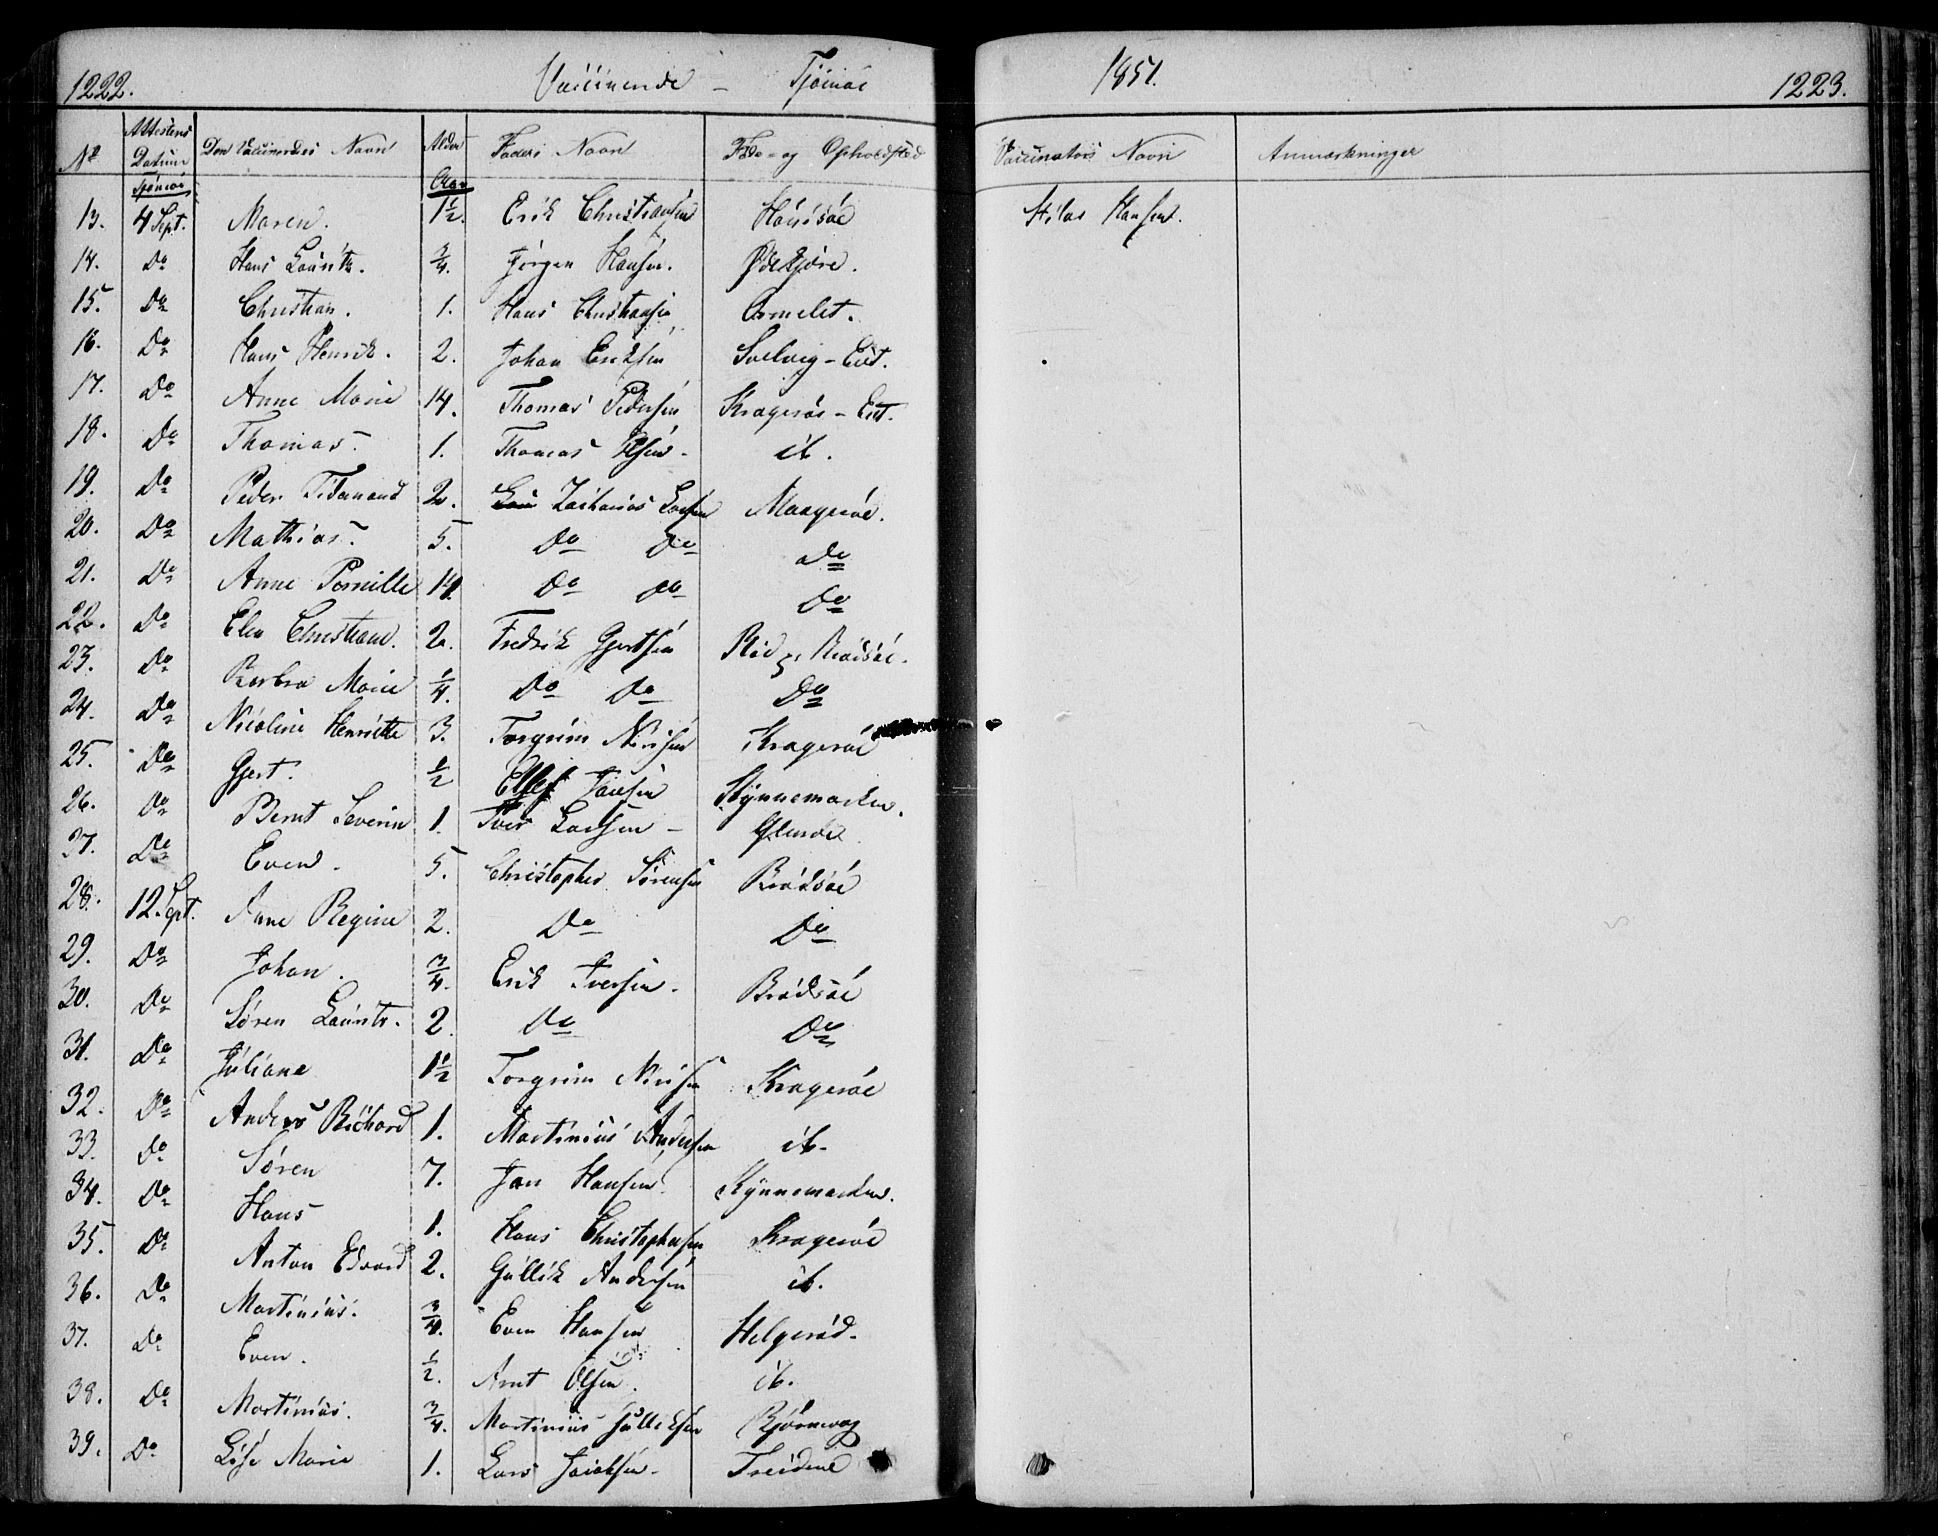 1222. Vaccinerede – Tjømøe 1851. 1223.
No Attestens Datum Den Vaccineredes Navn Alder Faders Navn Føde- og Opholdssted Vaccinators Navn Anmærkninger
Tjømøe Aar
13. 4 Sept. Maren. 1½. Erik Christiansen Hais Hansen.
14. Do Hans Lauritz. ¾. Jørgen Hansen.
15. Do Christian. 1. Hans Christiansen Ormelet.
16. Do Hans Henrik. 2. Johan Eriksen Svelvig – Eid.
17. Do Anne Marie 14. Thomas Pedersen Kragerøe – Eid.
18. Do Thomas. 1. Thomas Olsen – ib.
19. Do Peder Fidenand 2. Zacharias Larsen Maagerøe.
20. Do Mathias. 5. Do Do Do
21. Do Anne Pernille 14. Do Do Do
22. Do Elen Christiane. 2. Fredrik Gjertsen Rød p. Brødsøe.
23. Do Barbra Marie ¼. Do Do Do
24. Do Nicoline Henriette 3. Torgrim Nirisen Kragerøe
25. Do Gjert. ½ Ellef Jansen Kynnemarken.
26. Do Bernt Severin 1. Iver Larsen – Glenne
27. Do Even. 5. Christopher Sørensen Brødsøe
28. 12. Sept. Anne Regine 2. Do Do
29. Do Johan. ¾. Erik Iversen. Brødsøe
30. Do Søren Lauritz. 2. Do Do
31. Do Juliane 1½ Torgrim Nirisen Kragerøe
32. Do Anders Richard 1. Martinius Andersen ib.
33. Do Søren 7. Jan Hansen. Kynnemarken.
34. Do Hans 1. Hans Christophersen Kragerøe
35. Do Anton Edvard 2. Gullik Andersen ib.
36. Do Martinius. ¾. Even Hansen Helgerød.
37. Do Even. ½. Arnt Olsen. ib.
38. Do Martinius. ¾. Martinius Gulliksen Bjørnevaag
39. Do Lise Marie 1. Lars Jacobsen – Treidene